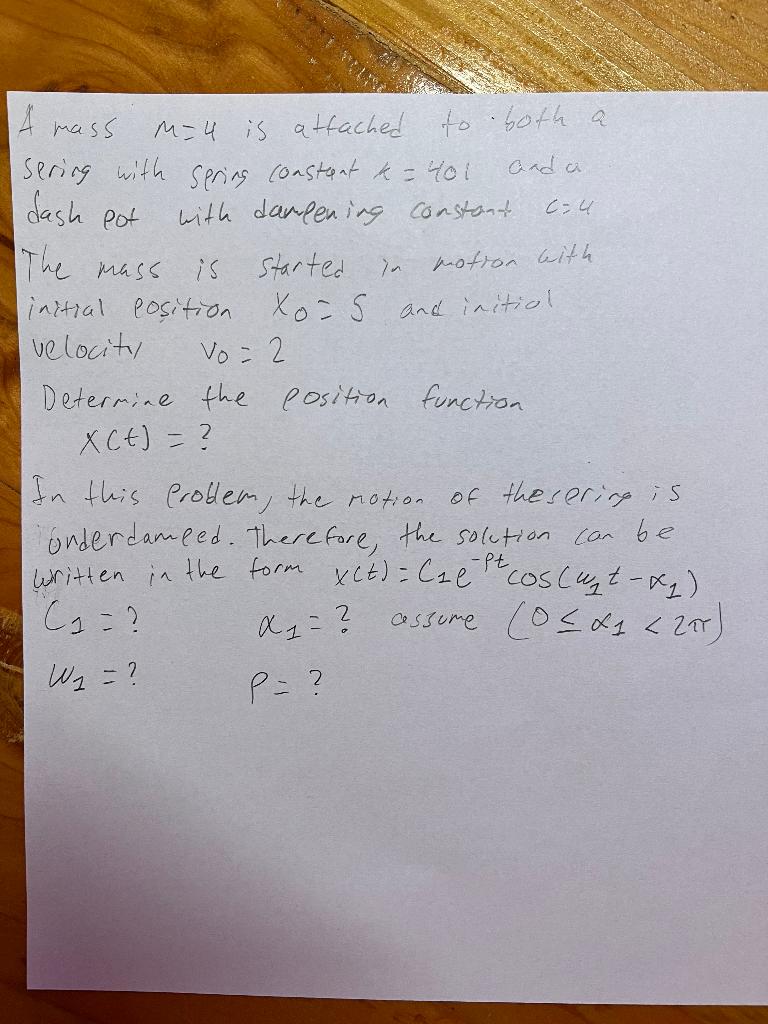 A mass m=4 is attached to both a
sering with spring constant k = 401 and a
dash pot with dampening constant c=4
The mass is started in motion with
initial position x₀ = 5 and initial
velocity v₀ = 2
Determine the position function
x(t) = ?
In this problem, the motion of the spring is
Underdamped. Therefore, the solution can be
written in the form x(t) = C₁e^-pt cos(ω₁t - α₁)
C₁ = ? α₁ = ? assume (0 ≤ α₁ < 2π)
ω₁ = ? p = ?